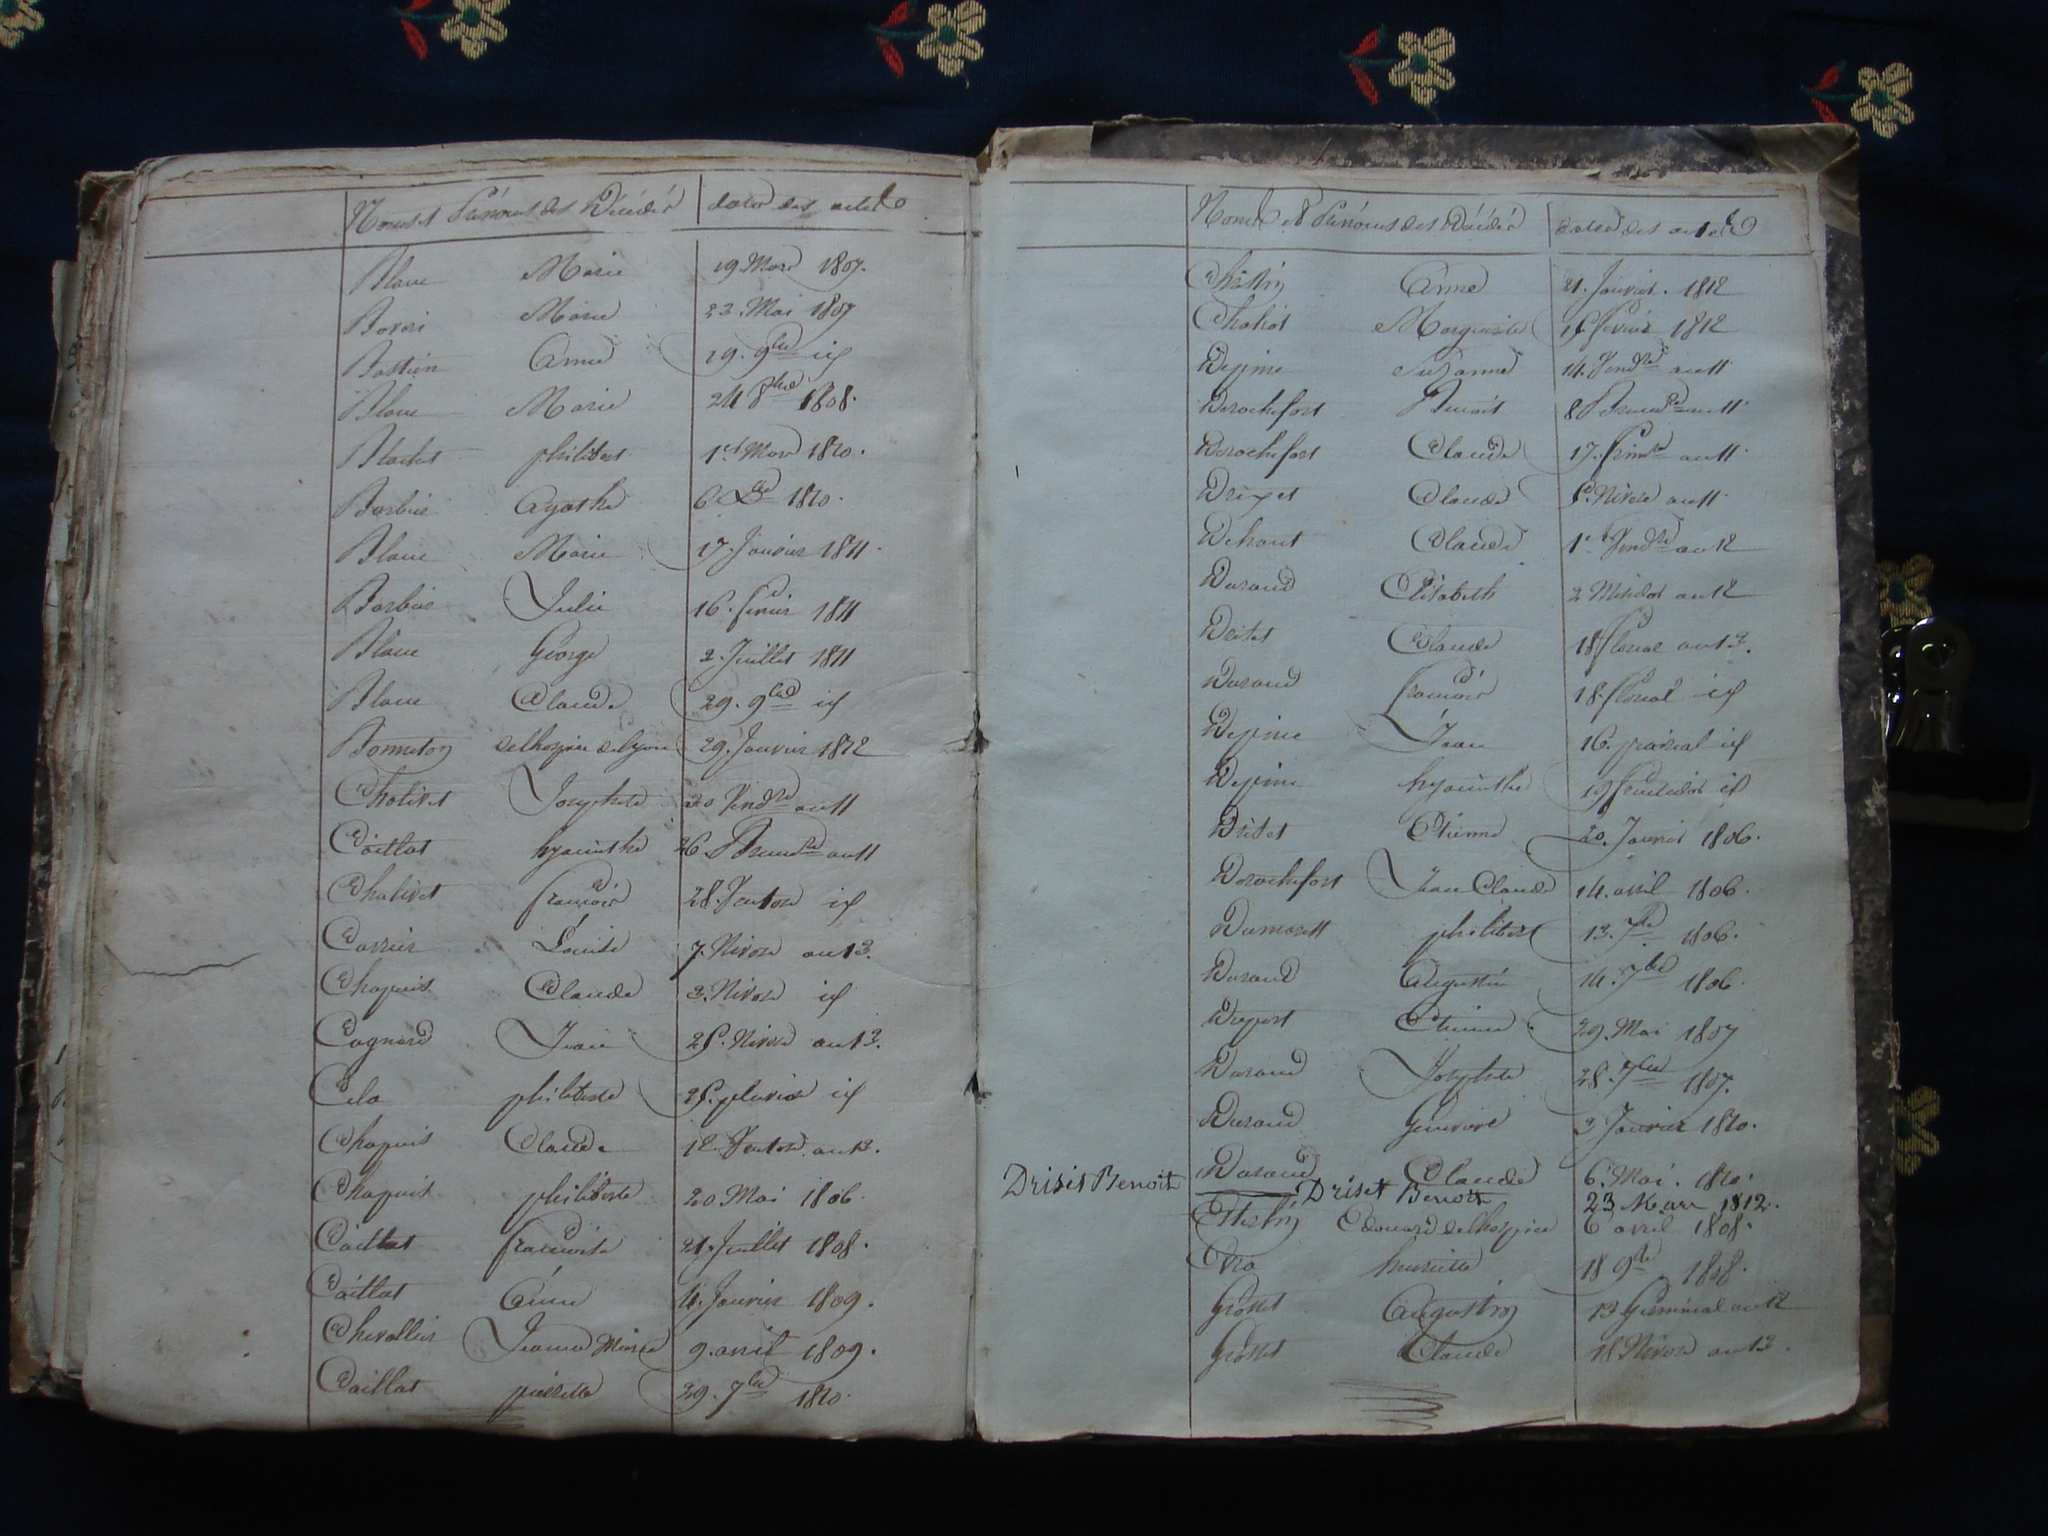 Noms et Prénoms des Décédés dates des actes
Blanc Marie 19 Mars 1807.
Marie 22 Mai 1807
Bastien Anne 19. 9bre id
Blanc Marie 24 8bre 1808.
Blachet philibert 1er Mars 1810.
Barbier Agathe 6 Xbre 1810.
Blanc Marie 17 Janvier 1811.
Barbier Julie 16. fevrier 1811
Blanc George 2. Juillet 1811
Blanc Claude 29. 9bre id
Bonneton delhospice de lyon 29. Janvier 1812
Chalivet Josephte 20 Vendre an 11
Caillat hyacinthe 26. Brumre an 11
Chalivet françois 28. Ventose id
Carrier Louise 7. Nivose an 13.
Chapuis Claude 3. Nivose id
Cagnard Jean 25. Nivose an 13.
Cela philiberte 25. pluviose id
Chapuis Claude 12. Ventose an 13.
Chapuis philiberte 20 Mai 1806.
Caillat françoise 21. Juillet 1808.
Caillat Anne 4. Janvier 1809.
Chevallier Jeanne Marie 9. avril 1809.
Caillat pierrette 29. 7bre 1810.
Noms et Prénoms des Décédés dates des actes
Anne 21. Janvier. 1812
Chaliot Marguerite 15 fevrier 1812
Depine Suzanne 14. Vendre an 11
Derochefort Benoit 8 Brumre an 11.
Derochefort Claude 17. frimre an 11.
Claude 5. Nivose an 11.
Dehant Claude 1er Vendre an 12
Durand Elisabeth 2 Messidor an 12
Dritet Claude 18 floreal an 13.
Durand françois 18. floreal id
Depine Jean 16. prairial id
Depine hyacinthe 19 fructidor id
Dritet Etienne 20. Janvier 1806.
Derochefort Jean Claude 14. avril 1806.
philibert 13. 7bre 1806.
Durand Augustin 14. 7bre 1806.
Duport Etienne 29. Mai 1807
Durand Josephte 28. 7bre 1807.
Durand Genevieve 3 Janvier 1810.
Durand Claude 6. Mai. 1810.
Driset Benoit Driset Benoit 23 Mars 1812.
Edouard delhospice 6 avril 1808.
henriette 18 9bre 1808.
Grosset Augustin 13 Germinal an 12
Grosset Claude 18 Nivose an 13.